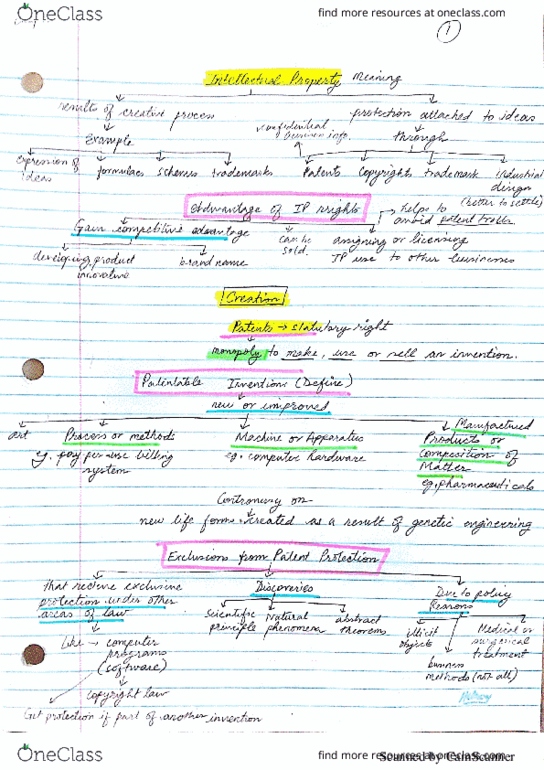 OneClass
find more resources at oneclass.com
1
Intellectual Property Meaning
results of creative process
protection attached to ideas
Example
confidential business info.
through
expression of ideas
formulaes
schemes
trademarks
Patents
Copyrights
trademark
industrial design
Advantage of IP rights
helps to avoid patent trolls
(better to settle)
Gain competitive advantage
can be sold.
assigning or licensing
IP use to other businesses
developing product innovative
brand name
Creation
Patents → statutary right
monopoly to make, use or sell an invention.
Patentable Inventions (Define)
new or improved
art
Process or methods
Machine or Apparatus
Manufactured Products or Composition of Matter
eg. pay per use billing system
eg. computer hardware
eg. pharmaceuticals
Controversy on
new life forms created as a result of genetic engineering
Exclusions from Patent Protection
that receive exclusive protection under other areas of law
Discoveries
Due to policy Reasons
scientific principle
natural phenomena
abstract theorems
illicit objects
business methods (not all)
Medical or surgical treatment
like → computer programs (software)
copyright law
Get protection if part of another invention
OneClass
find more resources at oneclass.com
Scanned by CamScanner